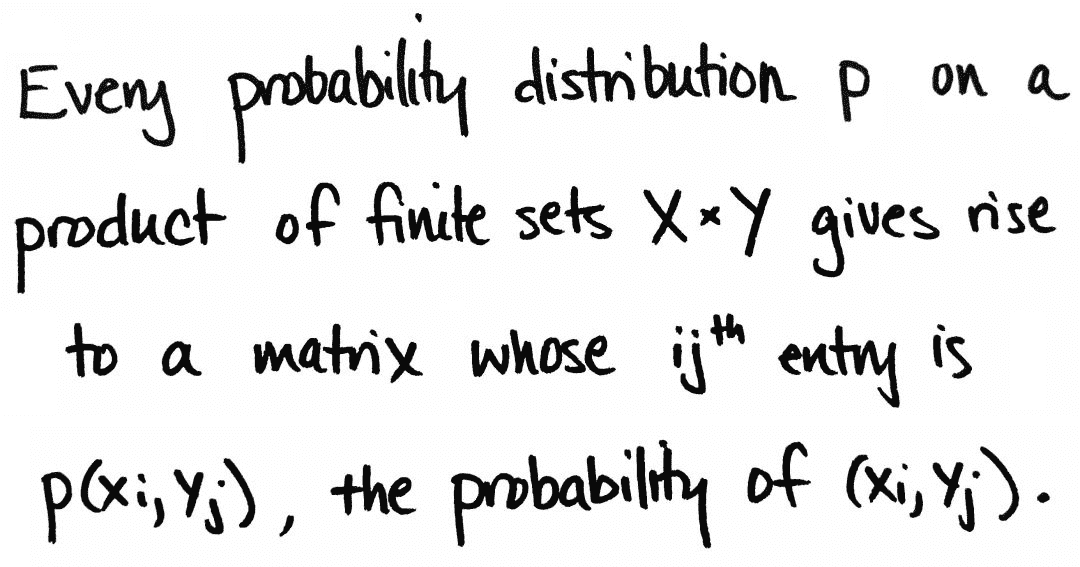 Every probability distribution p on a
product of finite sets X×Y gives rise
to a matrix whose ijᵗʰ entry is
p(xi, yj), the probability of (xi, yj).